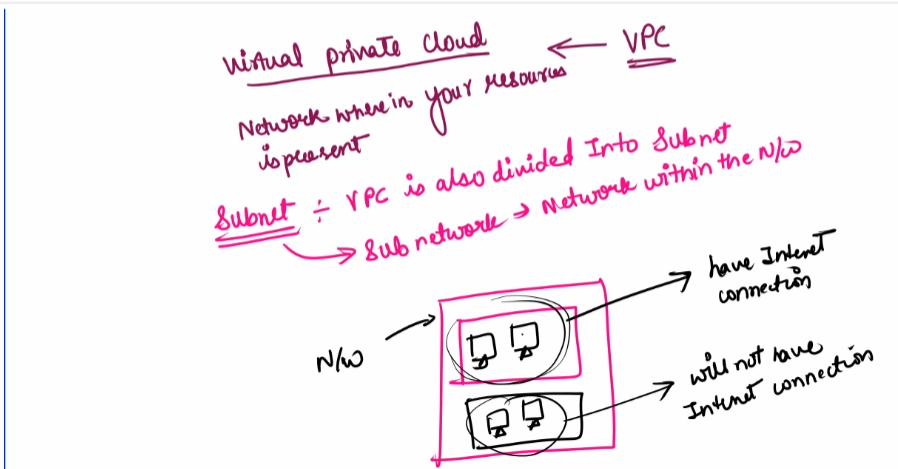 Virtual private cloud ← VPC
Network wherein your resources
is present
Subnet ÷ VPC is also divided Into Subnet
→ Sub network → Network within the N/W
have Internet
connection
N/W
will not have
Internet connection